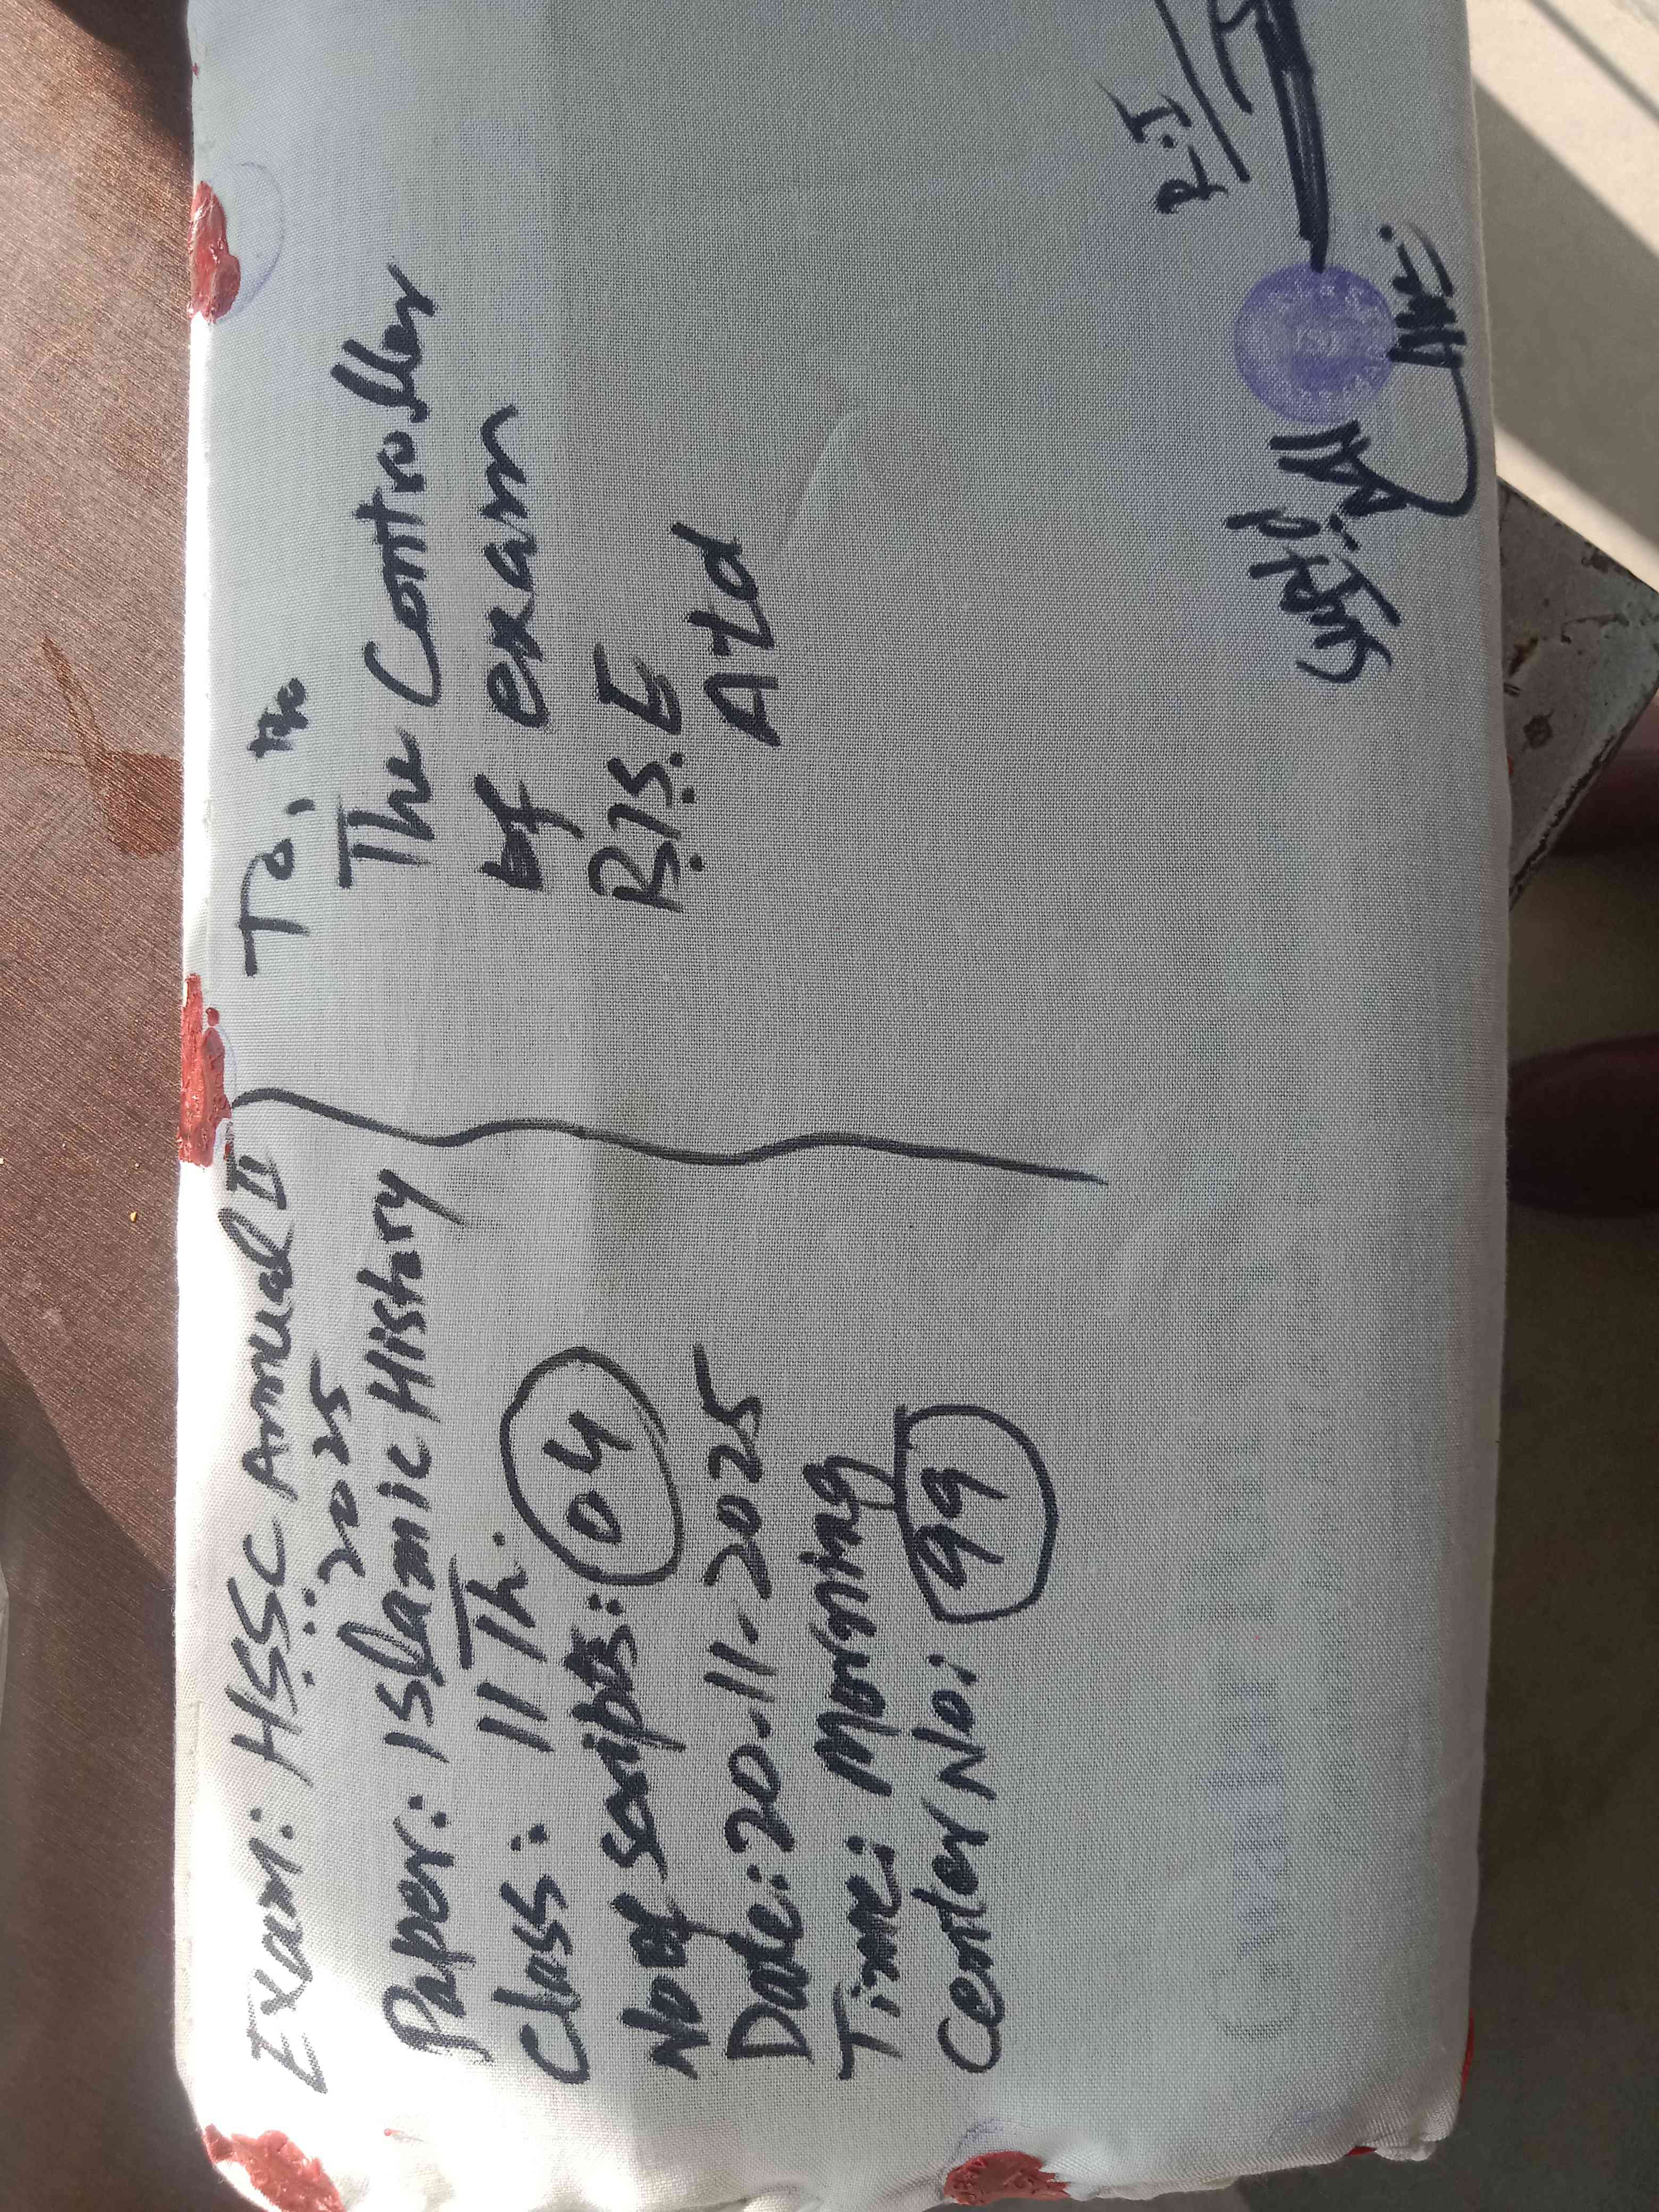 Exam: HSSC Annual II
2025
Paper: Islamic History
Class: 11 Th.
No of scripts: 04
Date: 20-11-2025
Time: Morning
Center No: 99
To,
The Controller
of exam
B.I.S.E
Atd
Suptd
R.I